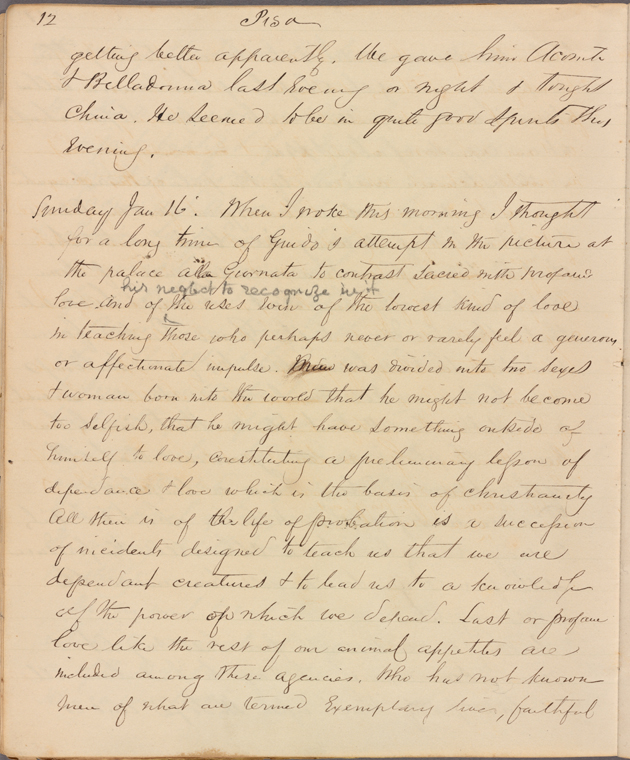 12 Pisa
getting better apparently. We gave him Aconite
& Belladonna last Evening or night & tonight
China. He seemed to be in quite good spirits this
Evening.
Sunday Jan 16. When I woke this morning I thought
for a long time of Guido's attempt in the picture at
the palace alla Giornata to contrast Sacred with profane
his neglect to recognize next
love and of the uses even of the lowest kind of love
in teaching those who perhaps never or rarely feel a generous
or affectionate impulse. was divided into two sexes
& woman born into the world that he might not become
too selfish, that he might have something outside of
himself to love, constituting a preliminary lesson of
dependance & love which is the basis of christianity
All there is of the life of probation is a succession
of incidents designed to teach us that we are
dependant creatures & to lead us to a knowledge
of the power on which we depend. Lust or profane
love like the rest of our animal appetites are
included among these agencies. Who has not known
men of what are termed Exemplary lives, faithful